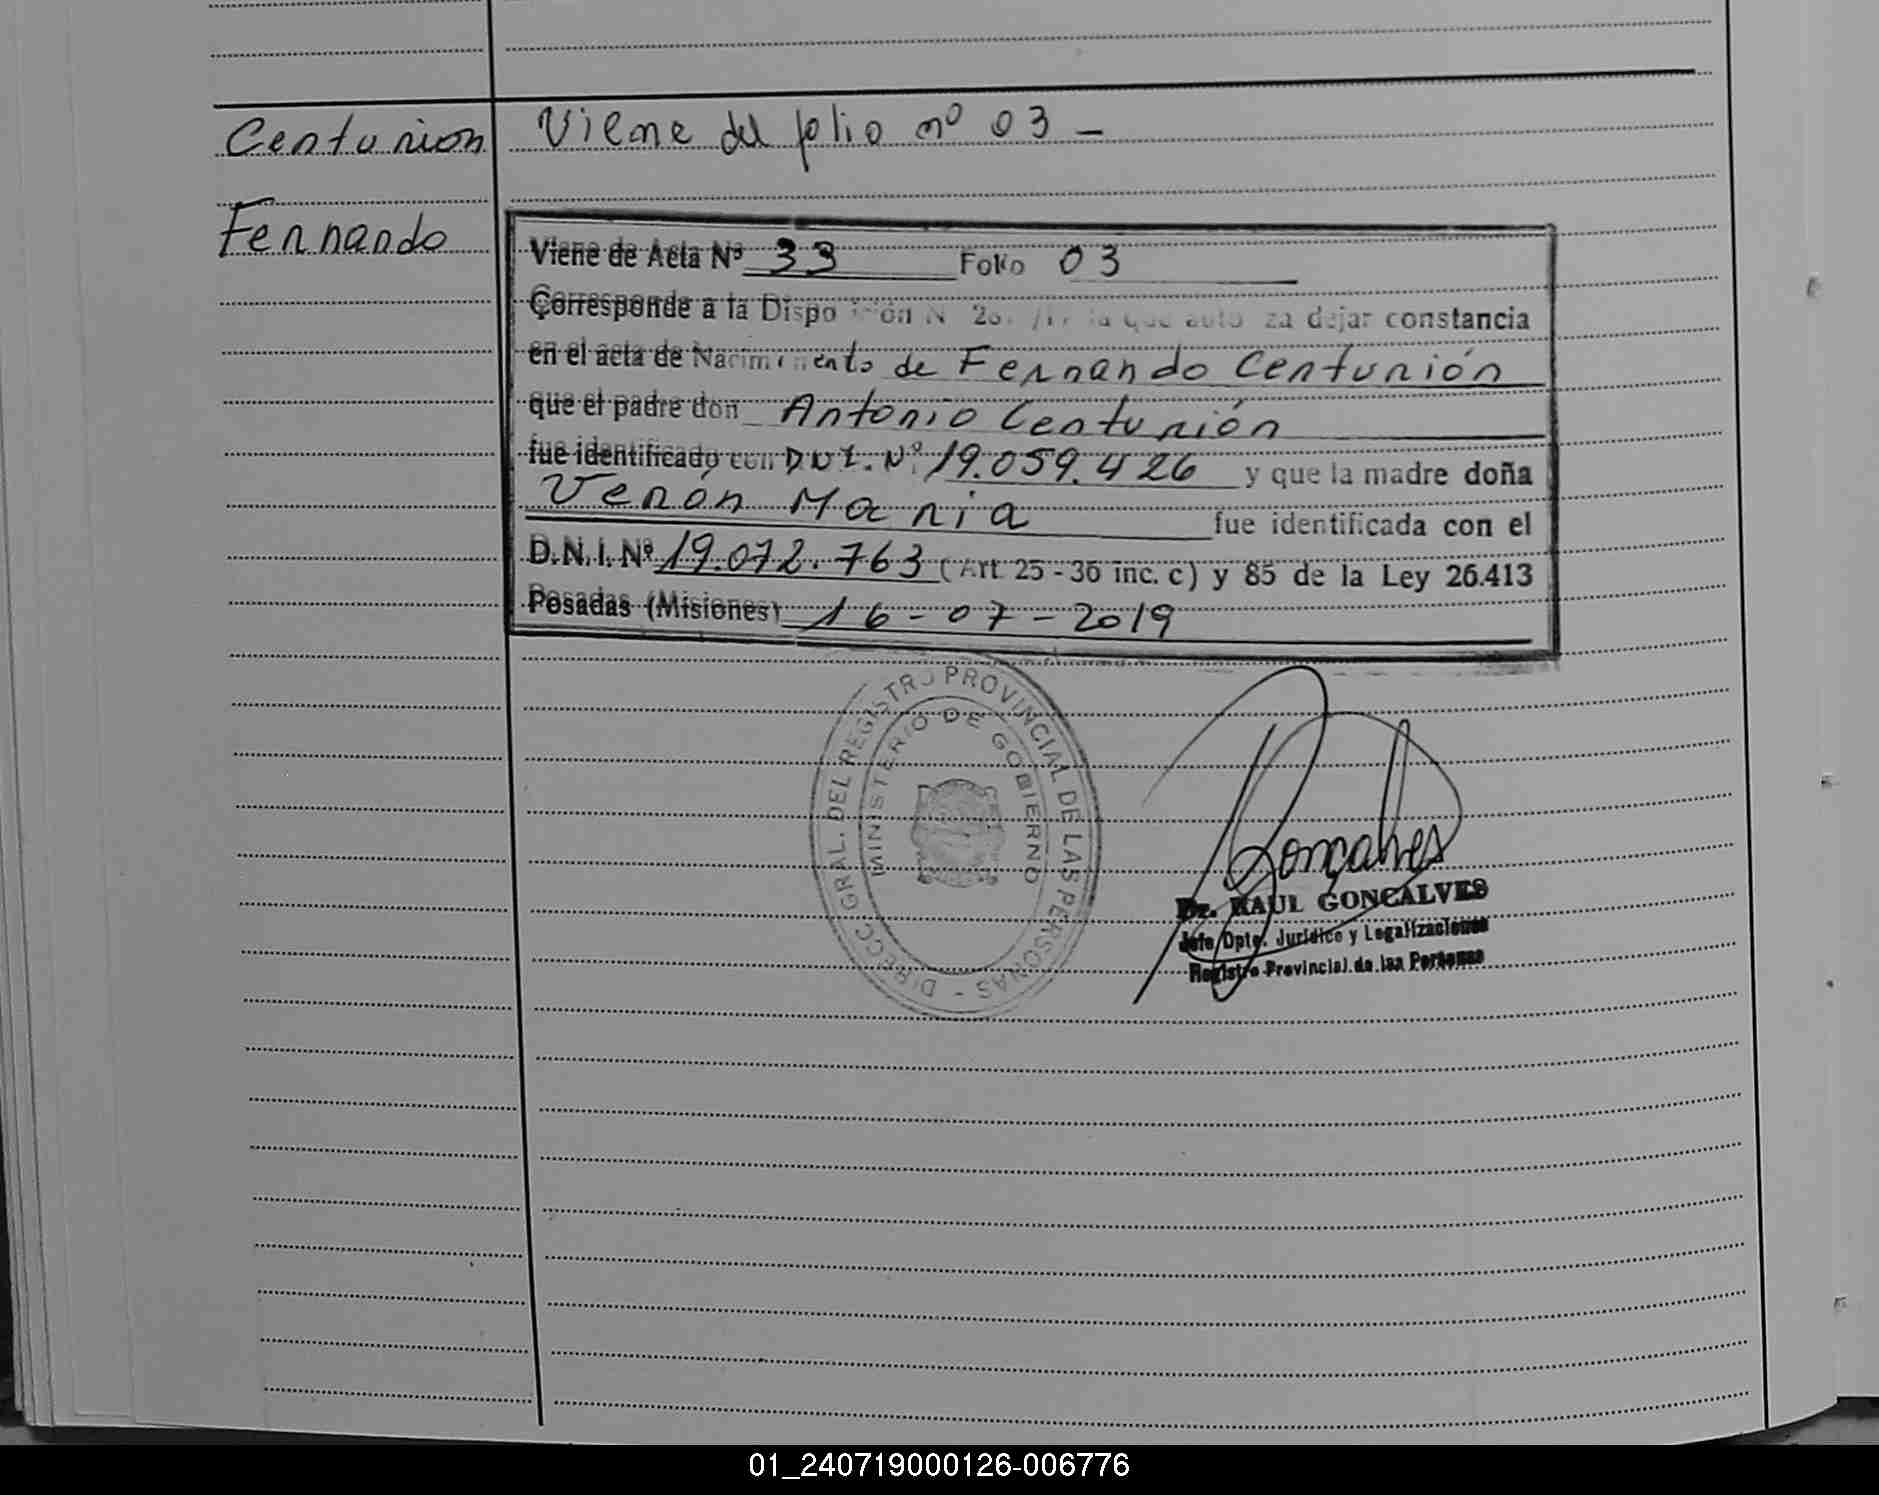 Centurion
Viene del folio nº 03 —
Fernando
Viene de Acta Nº 33 Folio 03
Corresponde a la Disposición N la que autoriza dejar constancia
en el acta de Nacimiento de Fernando Centurión
que el padre don Antonio Centurión
fue identificado con D.N.I. Nº 19.059.426 y que la madre doña
Verón Maria fue identificada con el
D.N.I. Nº 19.072.763 (Art 25 - 36 inc. c) y 85 de la Ley 26.413
Posadas (Misiones) 16 - 07 - 2019
DIRECC. GRAL. DEL REGISTRO PROVINCIAL DE LAS PERSONAS -
MINISTERIO DE GOBIERNO
Goncalves
Dr. RAUL GONCALVES
Jefe Dpto. Jurídico y Legalizaciones
Registro Provincial de las Personas
01_240719000126-006776